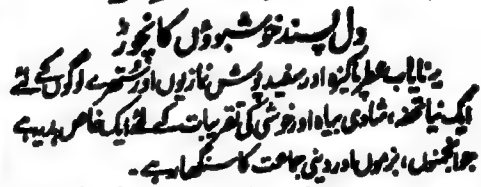 دل پسند خوشبوؤں کا نچوڑ
یہ نایاب عطر پاکیزہ اور سفید پوش نمازیوں اور ستھرے لوگوں کے لئے
ایک نیا تحفہ، شادی بیاہ اور خوشی کی تقریبات کے لئے ایک خاص ہدیہ ہے
جو انجمنوں، بزموں اور دینی جماعت کا سنگھار ہے۔